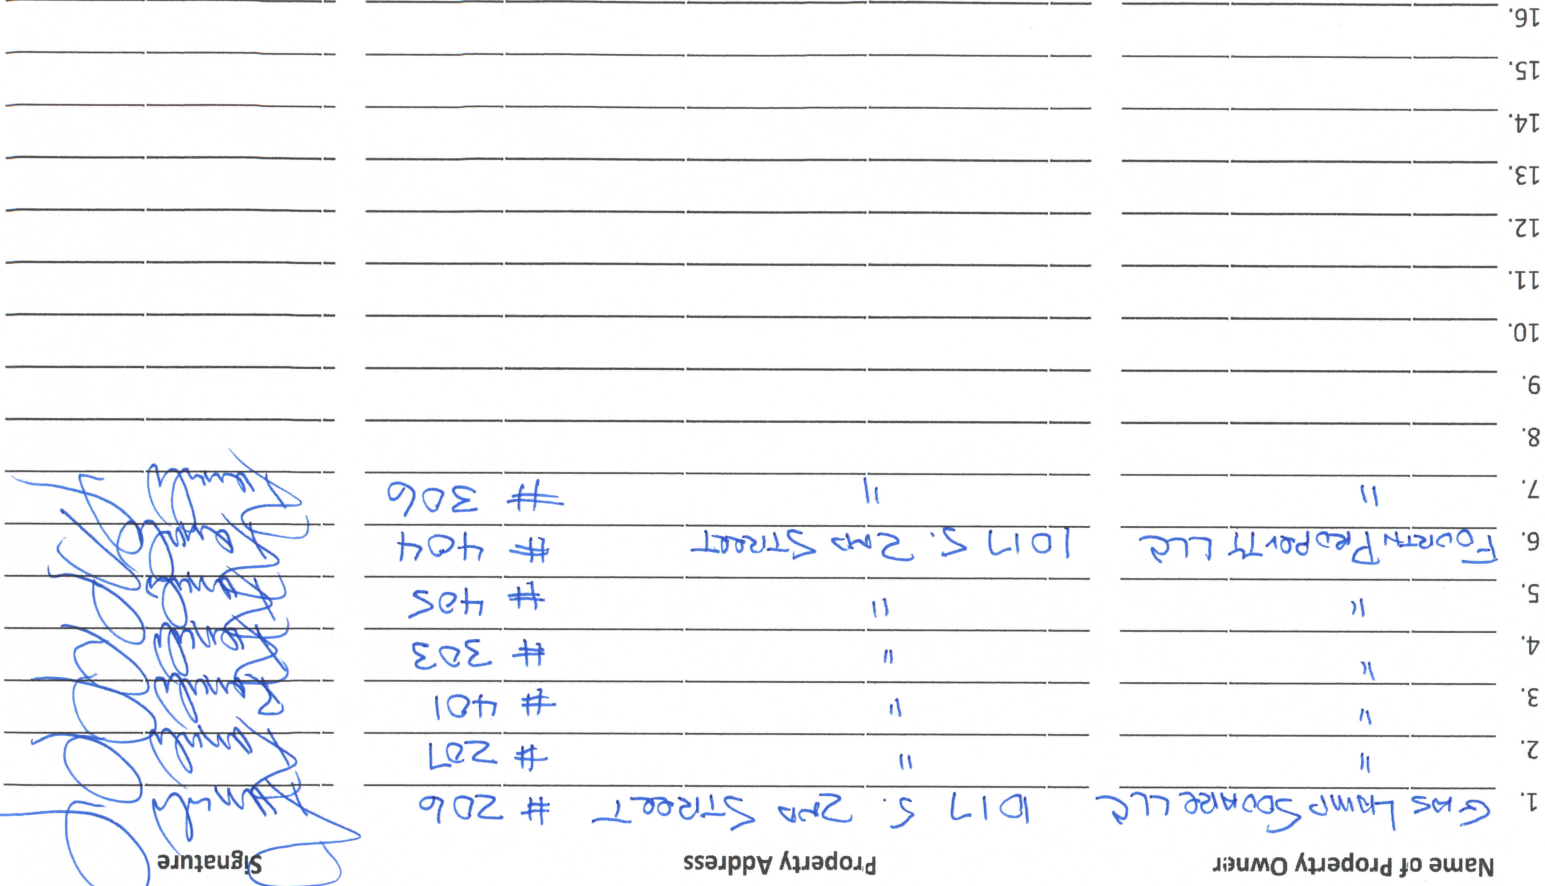 Name of Property Owner Property Address Signature
1. GAS LAMP SQUARE LLC 1017 S. 2ND STREET # 206
2. " " # 207
3. " " # 401
4. " " # 303
5. " " # 405
6. FOURTH PROPERTY LLC 1017 S. 2ND STREET # 404
7. " " # 306
8.
9.
10.
11.
12.
13.
14.
15.
16.